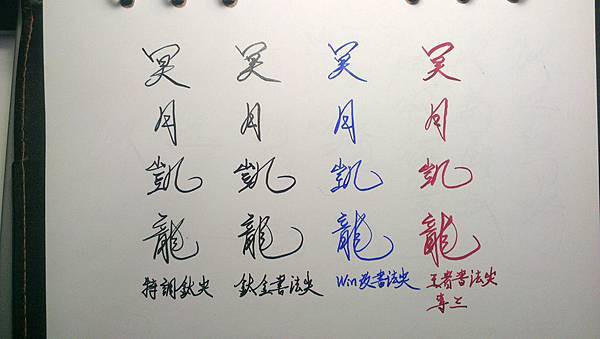 冥 冥 冥 冥
月 月 月 月
凱 凱 凱 凱
龍 龍 龍 龍
特調鈦尖 鈦金書法尖 Win改書法尖 王者書法尖